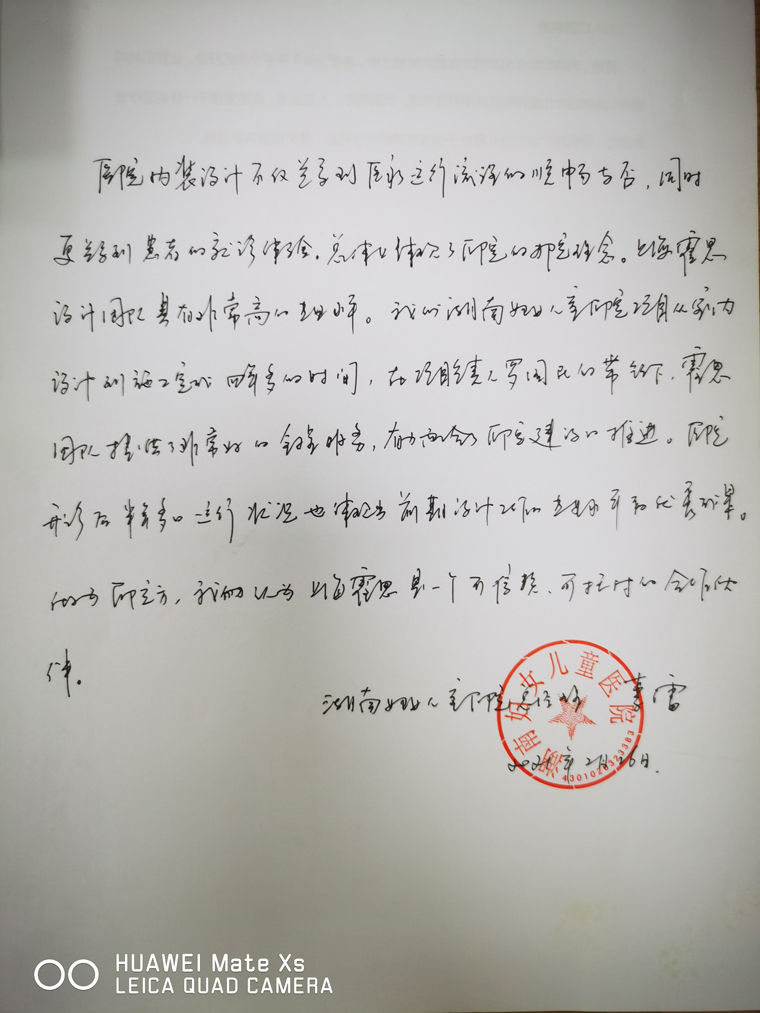 医院内装设计不仅关系到医疗运行流程的顺畅与否，同时
更关系到患者的就诊体验，总体上体现了医院的办院理念。上海霍思
设计团队具有非常高的专业水准。我们湖南妇女儿童医院项目从室内
设计到施工完成四年多的时间，在项目负责人罗国民的带领下，霍思
团队提供了非常好的全程服务，有力配合了医院建设的推进。医院
开诊后半年多的运行状况也体现出前期设计工作的专业水平和优秀成果。
作为医院方，我们认为上海霍思是一个可信赖、可托付的合作伙
伴。
湖南妇女儿童医院总经理 李雷
湖南妇女儿童医院
2月26日
HUAWEI Mate Xs
LEICA QUAD CAMERA